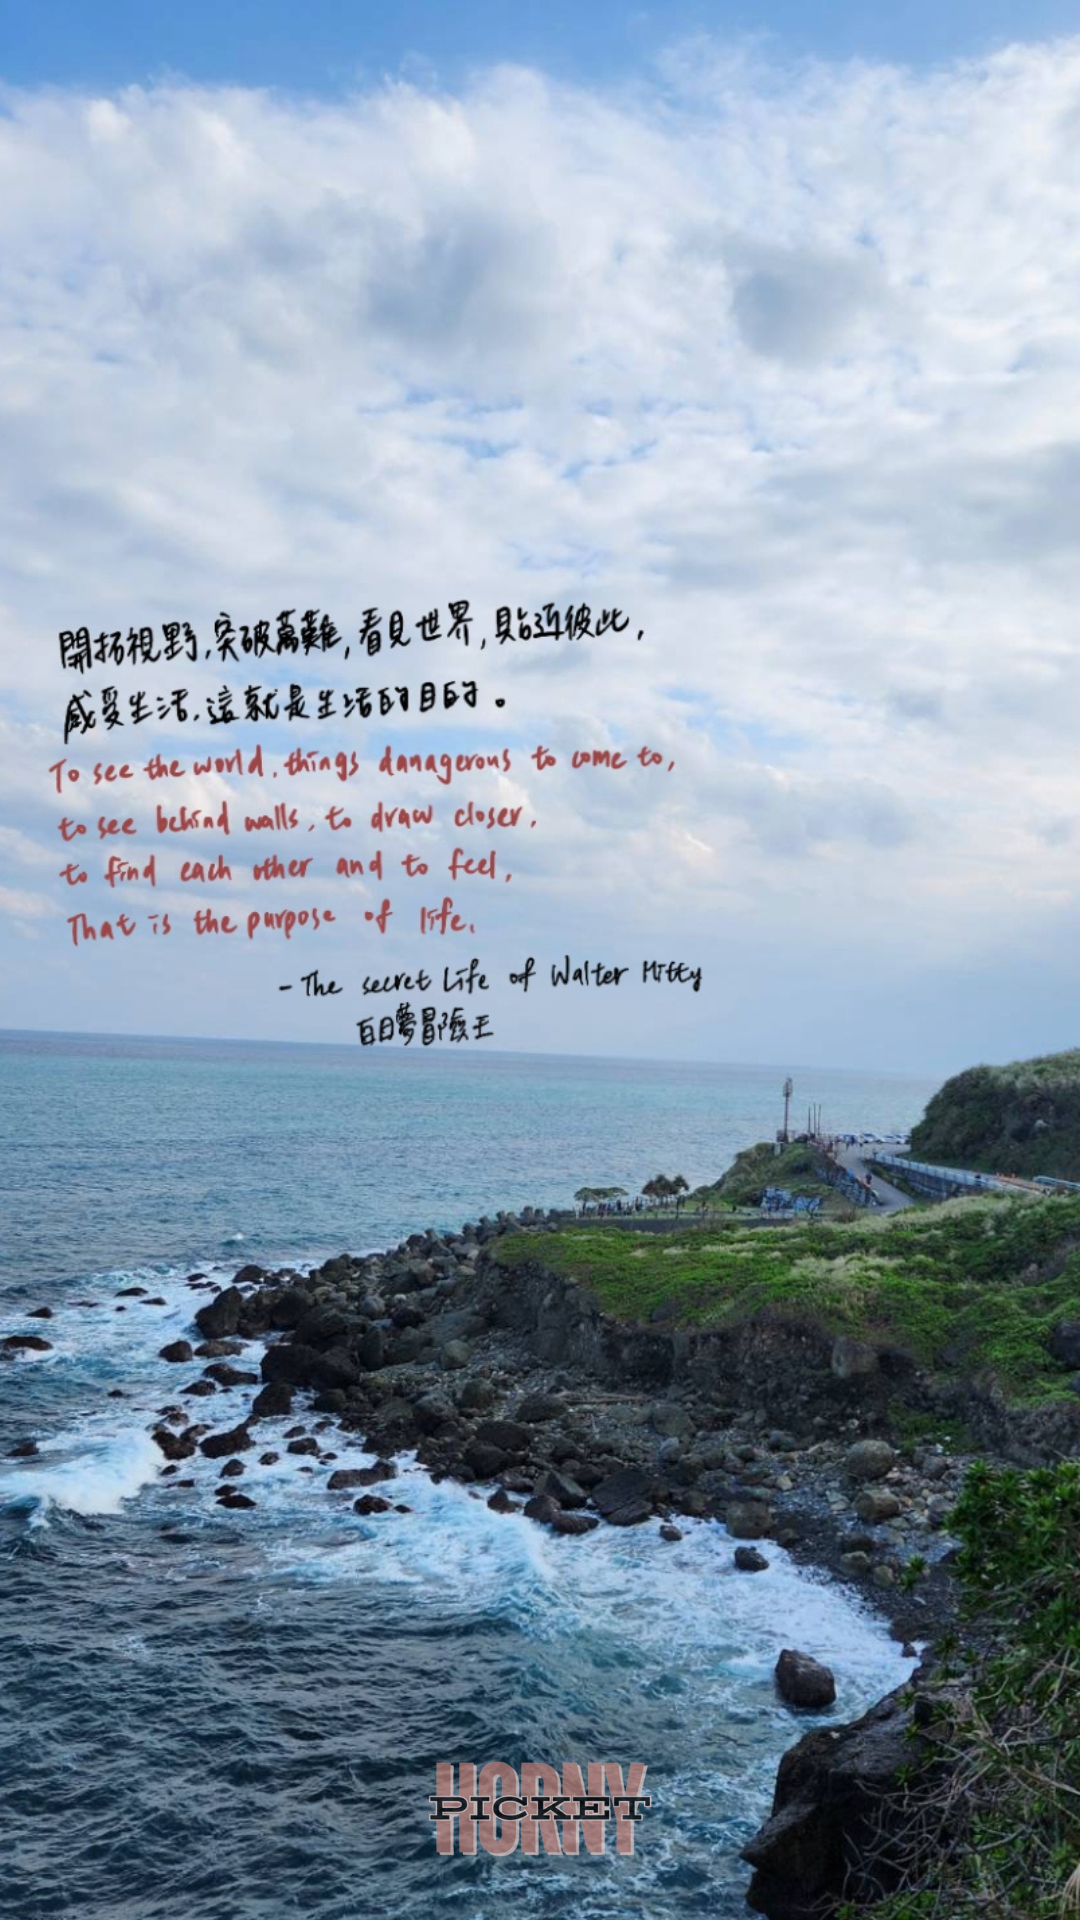 開拓視野,突破萬難,看見世界,貼近彼此,
感受生活,這就是生活的目的。
To see the world, things danagerous to come to,
to see behind walls, to draw closer,
to find each other and to feel,
That is the purpose of life.
- The secret Life of Walter Mitty
白日夢冒險王
HORNY
PICKET